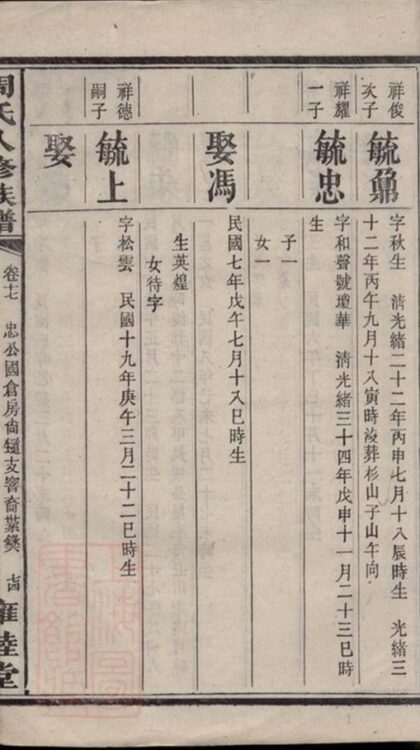 祥俊
次子
毓鼐
字秋生 清光緒二十二年丙申七月十八辰時生 光緒三
十二年丙午九月十八寅時歿葬杉山子山午向
祥耀
一子
毓忠
字和聲號瓊華 清光緒三十四年戊申十一月二十三巳時
生
子一
女一
娶馮
民國七年戊午七月十八巳時生
生英煌
女待字
祥德
嗣子
毓上
字松雲 民國十九年庚午三月二十二巳時生
娶
周氏八修族譜
卷十七 忠公國倉房尚鐩支睿裔業鐄 十四
雍睦堂